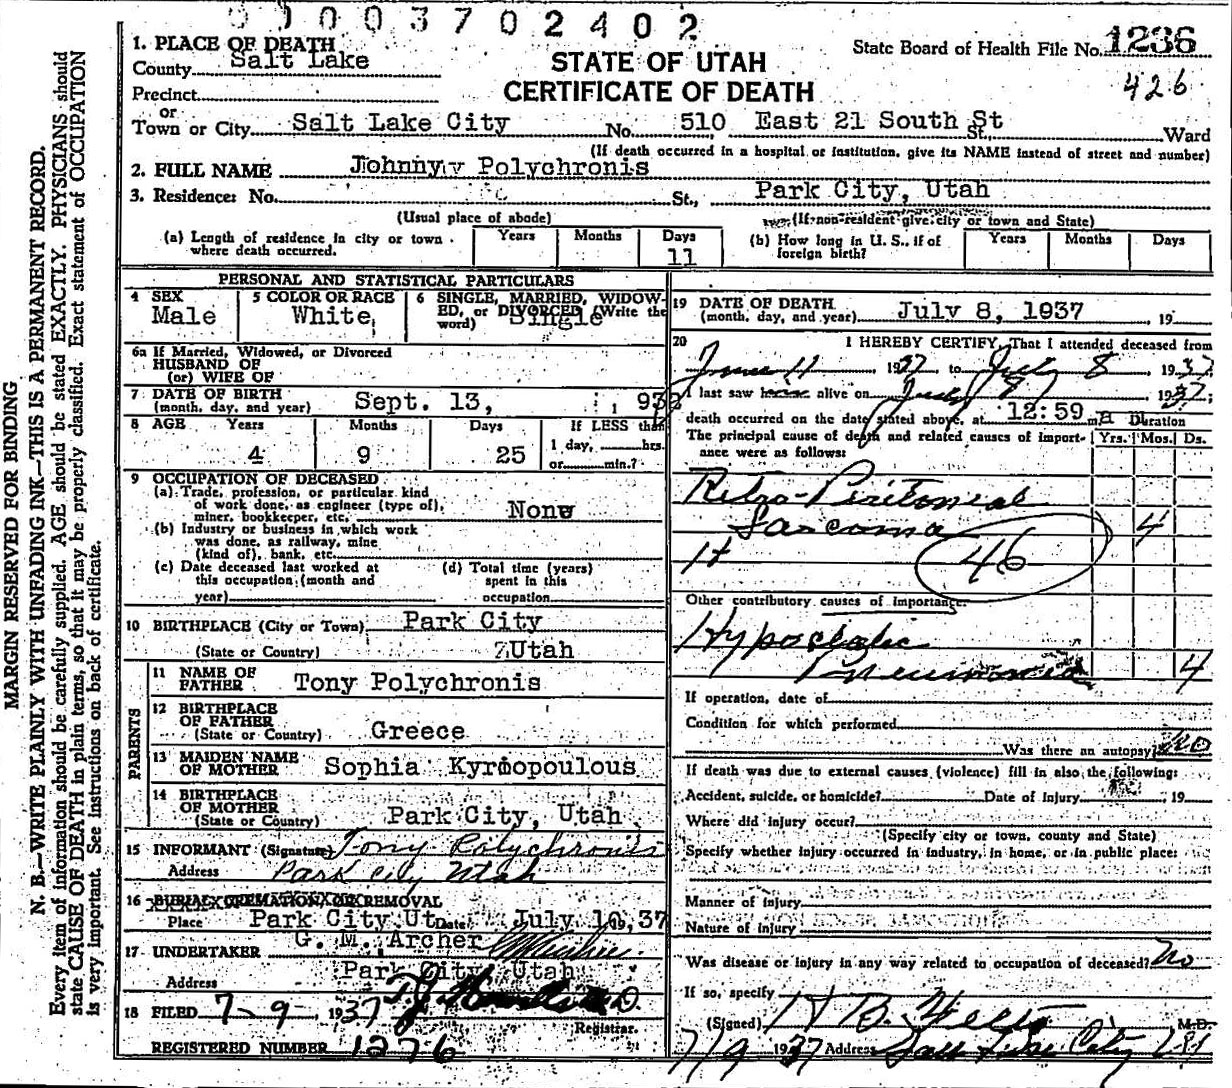 00003702402
1. PLACE OF DEATH
County Salt Lake
Precinct
or
Town or City Salt Lake City No. 510 East 21 South St St. Ward
STATE OF UTAH
CERTIFICATE OF DEATH
State Board of Health File No. 1236
426
(If death occurred in a hospital or institution, give its NAME instead of street and number)
2. FULL NAME Johnny Polychronis
3. Residence: No. St., Park City, Utah
(Usual place of abode) (If non-resident give city or town and State)
(a) Length of residence in city or town where death occurred. Years Months Days 11
(b) How long in U. S., if of foreign birth? Years Months Days
PERSONAL AND STATISTICAL PARTICULARS
4 SEX Male
5 COLOR OR RACE White
6 SINGLE, MARRIED, WIDOWED, or DIVORCED (Write the word) Single
6a If Married, Widowed, or Divorced
HUSBAND OF
(or) WIFE OF
7 DATE OF BIRTH
(month, day, and year) Sept. 13, 1932
8 AGE Years Months Days If LESS than
4 9 25 1 day, hrs.
or min.?
9 OCCUPATION OF DECEASED
(a) Trade, profession, or particular kind
of work done, as engineer (type of),
miner, bookkeeper, etc. None
(b) Industry or business in which work
was done, as railway, mine
(kind of), bank, etc.
(c) Date deceased last worked at
this occupation (month and
year)
(d) Total time (years)
spent in this
occupation
10 BIRTHPLACE (City or Town) Park City
(State or Country) Utah
PARENTS
11 NAME OF
FATHER Tony Polychronis
12 BIRTHPLACE
OF FATHER
(State or Country) Greece
13 MAIDEN NAME
OF MOTHER Sophia Kyroopoulous
14 BIRTHPLACE
OF MOTHER
(State or Country) Park City, Utah
15 INFORMANT (Signature) Tony Polychronis
Address Park City Utah
16 BURIAL CREMATION OR REMOVAL
Place Park City Ut Date July 10, 37
17 UNDERTAKER G. M. Archer
Address Park City Utah
18 FILED 7-9- 1937
Registrar.
REGISTERED NUMBER 1276
19 DATE OF DEATH
(month, day, and year) July 8, 1937 19
20 I HEREBY CERTIFY, That I attended deceased from
June 11 1937 to July 8 1937
I last saw him alive on July 8 1937
death occurred on the date stated above, at 12:59 m a Duration
The principal cause of death and related causes of importance were as follows: Yrs. Mos. Ds.
Retro-Peritoneal
Sarcoma 4
46
Other contributory causes of importance:
Hypostatic
Pneumonia 4
If operation, date of
Condition for which performed
Was there an autopsy? no
If death was due to external causes (violence) fill in also the following:
Accident, suicide, or homicide? Date of injury 19
Where did injury occur?
(Specify city or town, county and State)
Specify whether injury occurred in industry, in home, or in public place:
Manner of injury
Nature of injury
Was disease or injury in any way related to occupation of deceased? No
If so, specify
(Signed) M.D.
7/9 1937 Address Salt Lake City
MARGIN RESERVED FOR BINDING
N. B.—WRITE PLAINLY WITH UNFADING INK—THIS IS A PERMANENT RECORD.
Every item of information should be carefully supplied. AGE should be stated EXACTLY. PHYSICIANS should
state CAUSE OF DEATH in plain terms, so that it may be properly classified. Exact statement of OCCUPATION
is very important. See instructions on back of certificate.